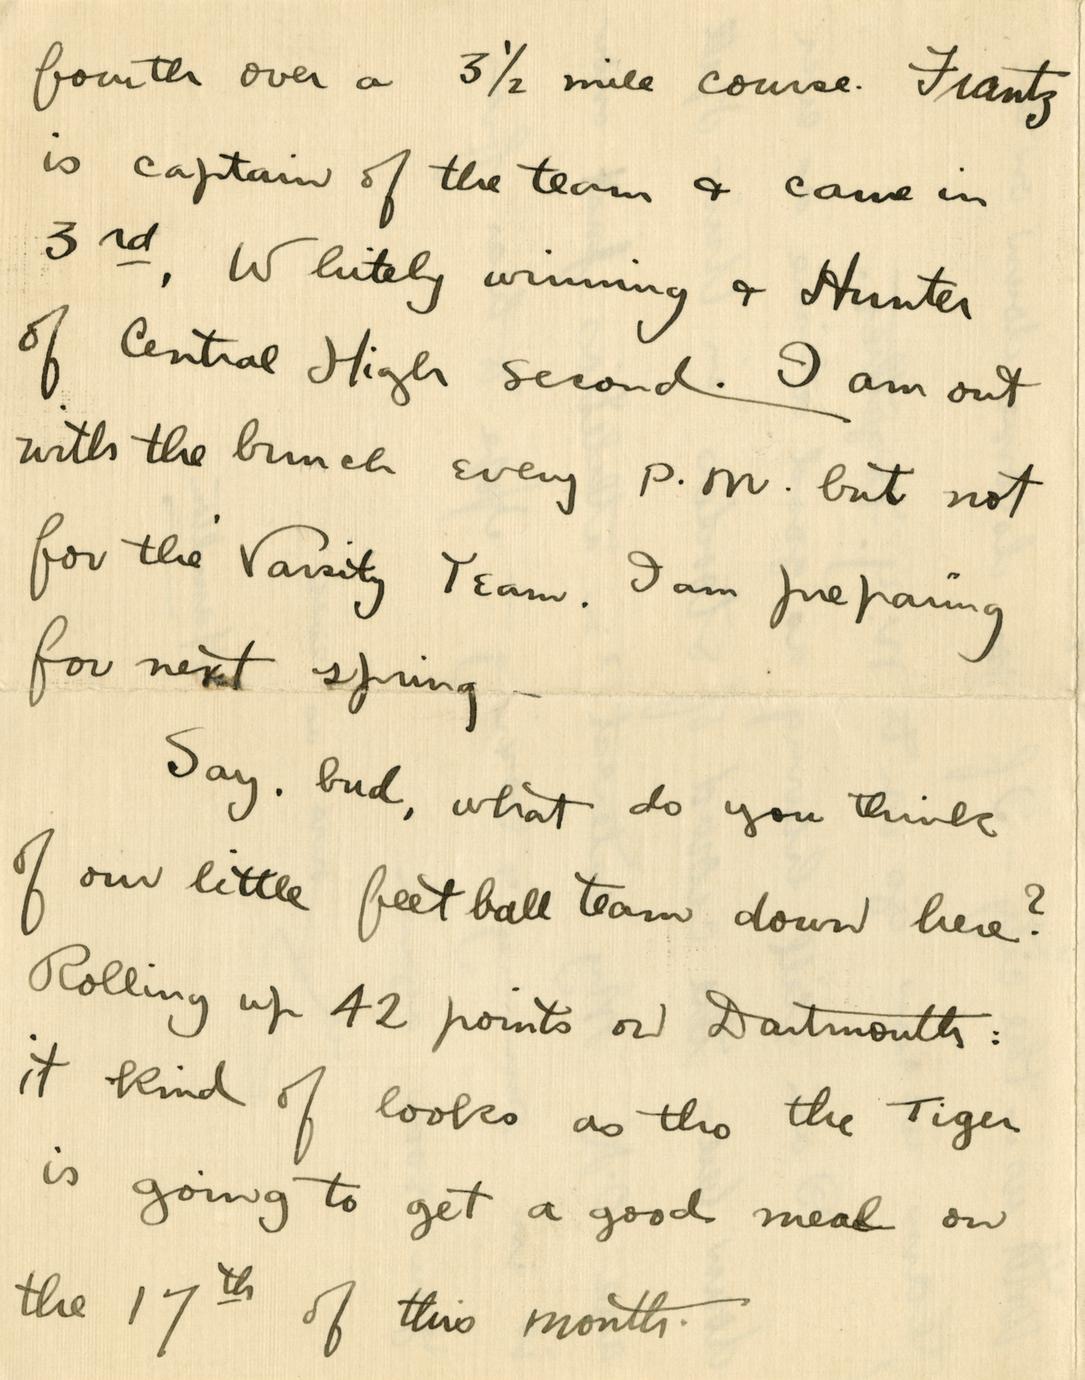 fourth over a 3½ mile course. Frantz
is captain of the team & came in
3rd, Whitely winning & Hunter
of Central High second. I am out
with the bunch every P.M. but not
for the Varsity Team. I am preparing
for next spring –
Say, bud, what do you think
of our little feetball team down here?
Rolling up 42 points on Dartmouth:
it kind of looks as tho the Tiger
is going to get a good meal on
the 17th of this month.